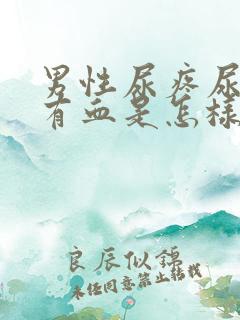 男性尿疼尿
有血是怎样
良辰似锦
未经同意禁止转载